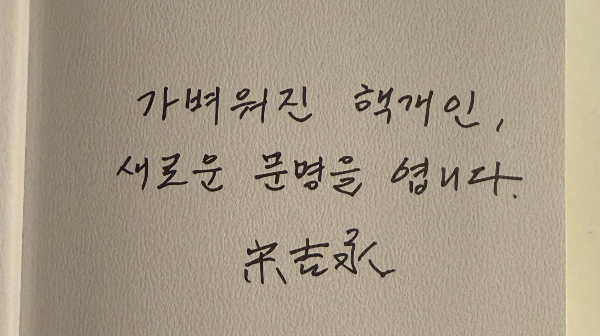 가벼워진 핵개인,
새로운 문명을 엽니다.
宋吉永